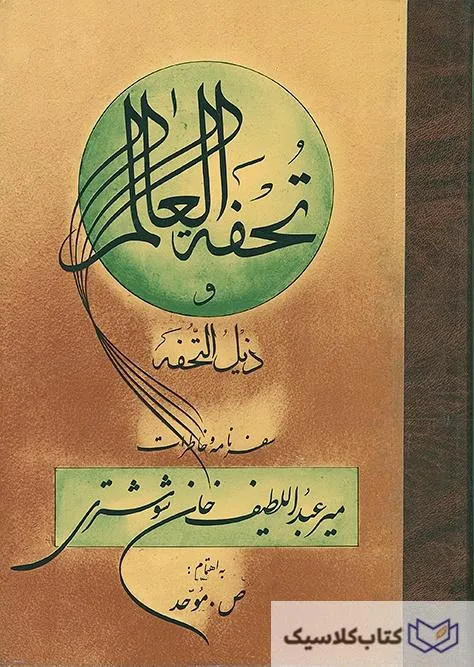 تُحفة العالم
و
ذیلُ التُّحفَه
سفرنامه و خاطرات
میر عبدُاللطیف خان شوشتری
به اهتمام :
ص . مُوَحّد
کتاب کلاسیک